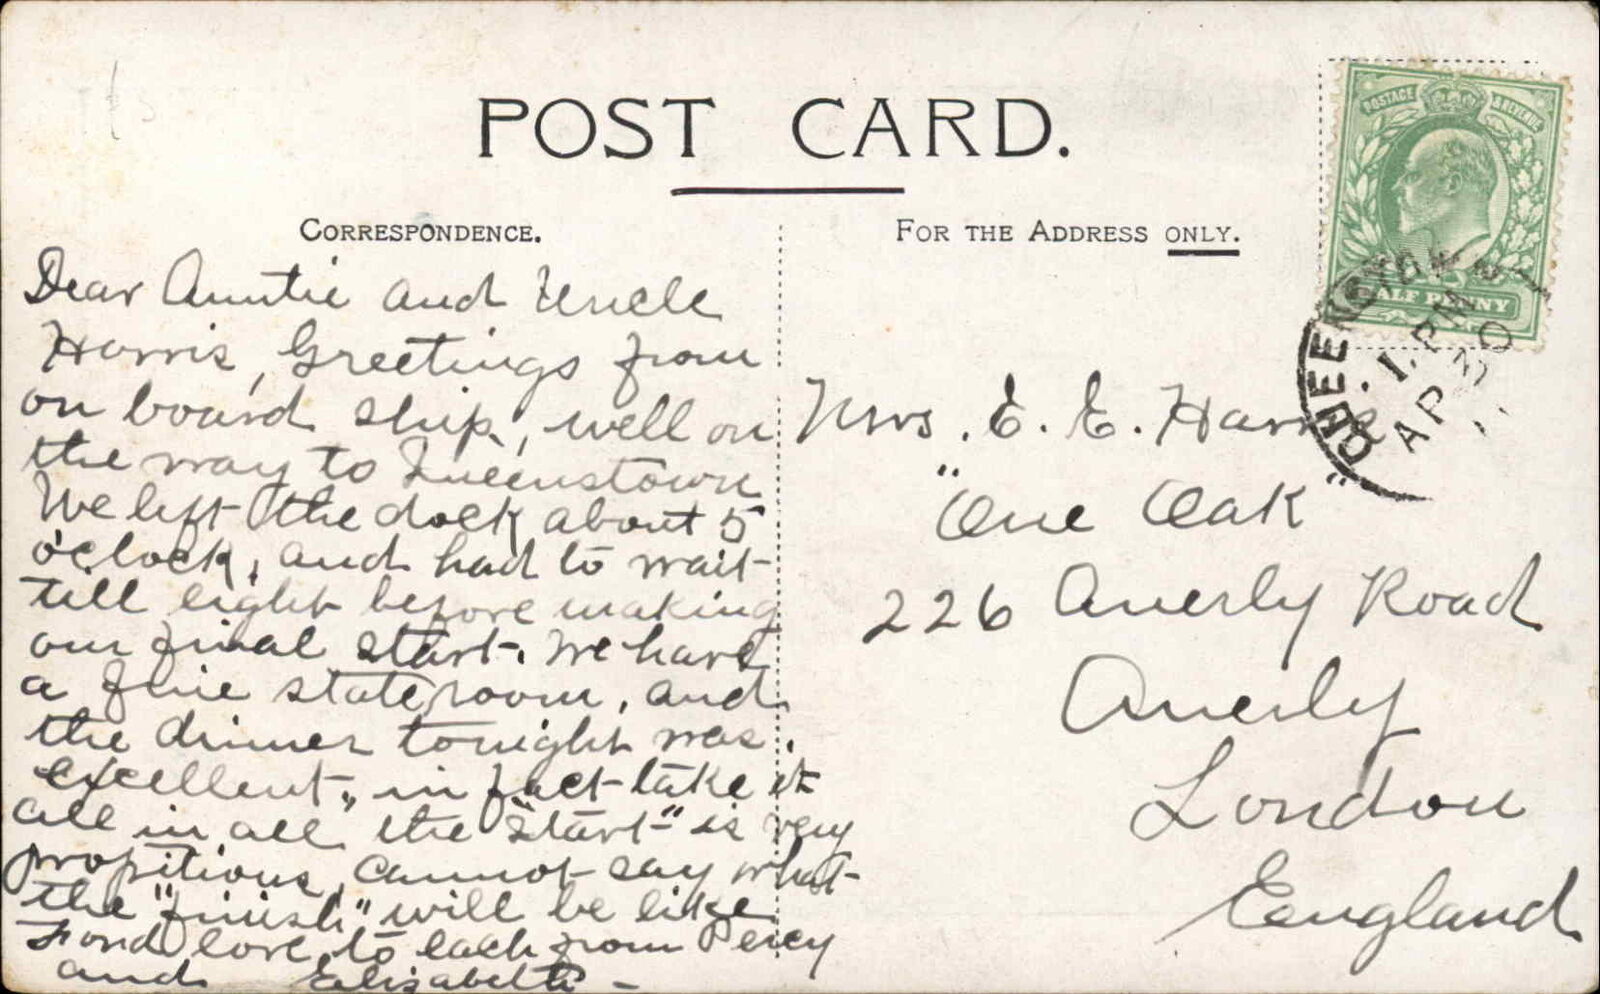 POST CARD.
CORRESPONDENCE.
FOR THE ADDRESS ONLY.
POSTAGE & REVENUE
HALF PENNY
QUEENSTOWN
1. PM
AP 30
11
Dear Auntie and Uncle
Harris, Greetings from
on board ship, well on
the way to Queenstown
We left the dock about 5
o'clock, and had to wait
till eight before making
our final start. We have
a fine stateroom, and
the dinner tonight was
excellent, in fact take it
all in all the "start" is very
propitious, cannot say what
the "finish" will be like
Fond love to each from Percy
and Elisabeth -
Mrs. E. E. Harris
"One Oak"
226 Anerly Road
Anerly
London
England